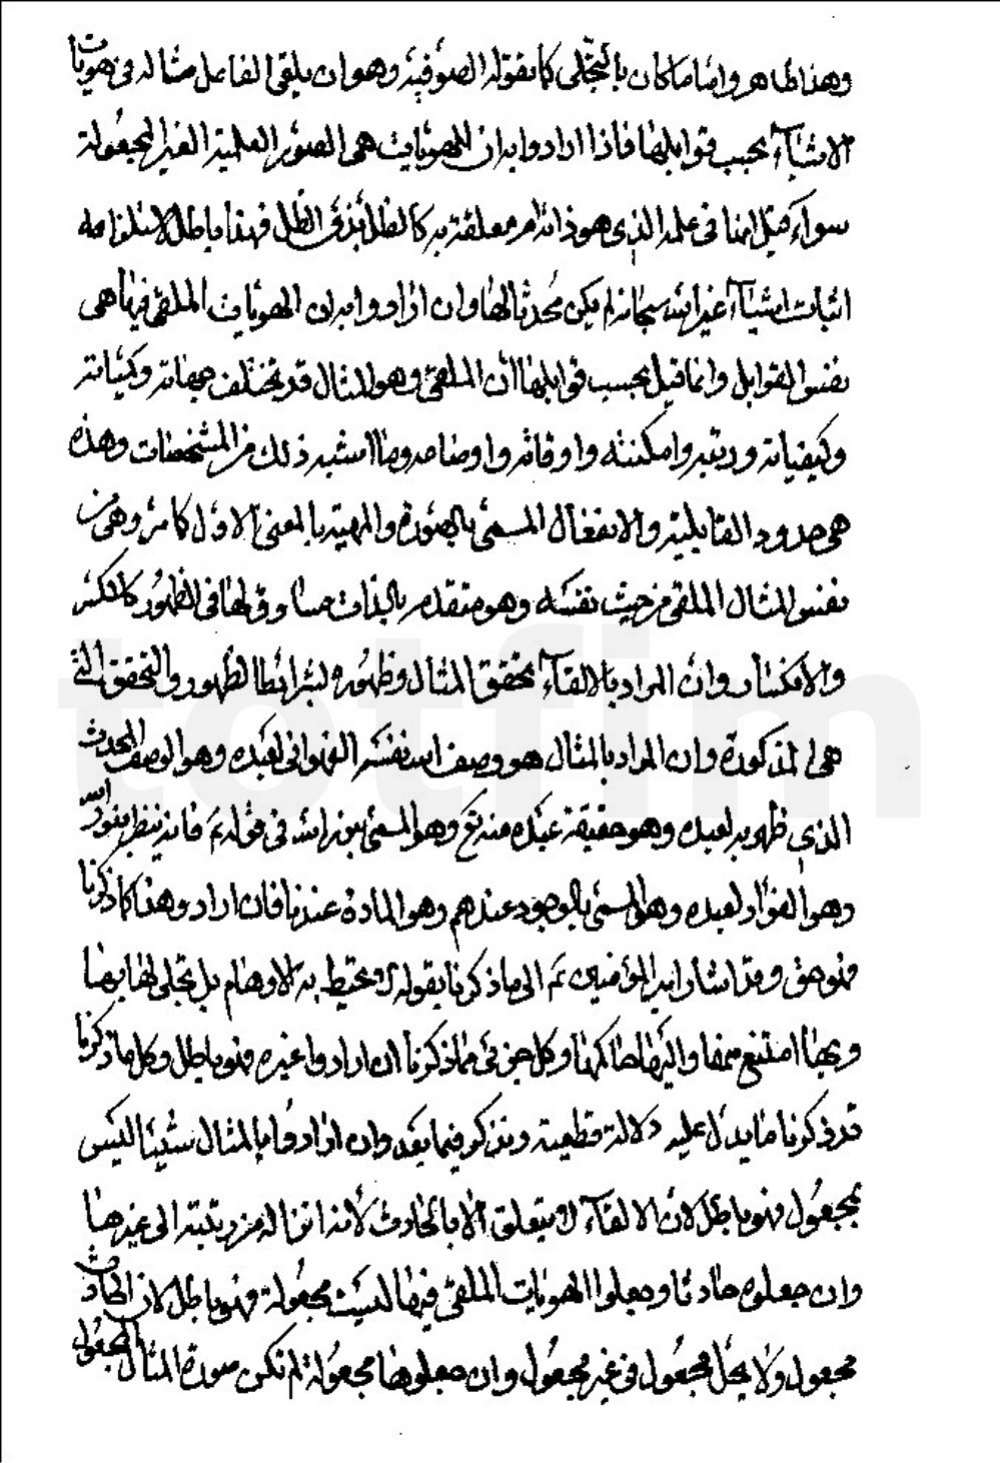 وهذا ظاهر وانما ما كان بالتجلّي كما يقوله الصوفية وهو ان يلقى الفاعل مثاله في هويات
الاشياء بحسب قوابلها فاذا ارادوا بان الهويات هي الصور العلمية الغير المجعولة
سواء قيل انها في علمه الذي هو ذاته ام معلقة به كالظل بذي الظل فهذا باطل لاستلزامه
اثبات اشياء غير الله سبحانه لم يكن محدثا لها وان ارادوا بان الهويات الملقى فيها هي
نفس القوابل وانما قيل بحسب قوابلها لان الملقى وهو المثال قد تختلف جهاته وكمياته
وكيفياته ورتبه وامكنته واوقاته واوضاعه وما اشبه ذلك من المشخصات وهذه
هي حدود القابلية والانفعال المسمى بالصورة والمهية بالمعنى الاول كما مر وهي من
نفس المثال الملقى من حيث نفسه وهو متقدم بالذات مساوق لها في الظهور كالكسر
والانكسار وان المراد بالالقاء تحقق المثال وظهوره لشرائط الظهور والتحقق التي
هي المذكورة وان المراد بالمثال هو وصف الله نفسه الفهواني لعبده وهو الوصف المحدث
الذي ظهر به لعبده وهو حقيقة عبده منه تع وهو المسمى بنور الله في قوله ع فانه ينظر بنور الله
وهو الفؤاد لعبده وهو المسمى بالوجود عندهم وهو المادة عندنا فان ارادوا هذا كما ذكرنا
فهو حق وقد اشار امير المؤمنين ع الى ما ذكرنا بقوله لا تحيط به الاوهام بل تجلى لها بها
وبها امتنع منها واليها حاكمها وكل جزئي مما ذكرنا ان ارادوا غيره فهو باطل وكل ما ذكرنا
قد ذكرنا ما يدل عليه دلالة قطعية ونذكر فيما بعد وان ارادوا بالمثال شيئا ليس
بمجعول فهو باطل لان الالقاء لا يتعلق الا بالحادث لانه انزاله من رتبته الى غيرها
وان جعلوه حادثا وجعلوا الهويات الملقى فيها ليست مجعولة فهو باطل لان الحادث
مجعول ولا يحل مجعول في غير مجعول وان جعلوها مجعولة لم تكن صورة المثال المجعول
totfim